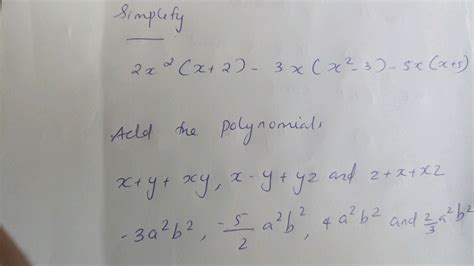 Simplify
2x²(x+2) - 3x(x²-3) - 5x(x+5)
Add the polynomials
x+y+xy, x-y+yz and z+x+xz
-3a²b², -5/2 a²b², 4a²b² and 2/3 a²b²